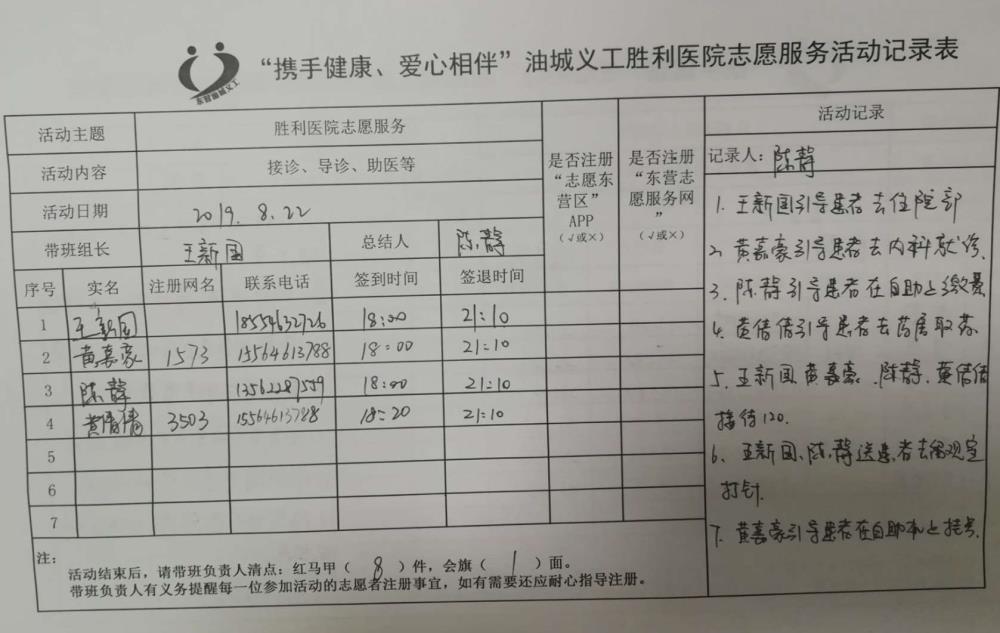 东营油城义工
“携手健康、爱心相伴”油城义工胜利医院志愿服务活动记录表
活动主题 胜利医院志愿服务
活动内容 接诊、导诊、助医等
活动日期 2019.8.22
带班组长 王新国 总结人 陈静
是否注册“志愿东营区”APP（√或×）
是否注册“东营志愿服务网”（√或×）
序号 实名 注册网名 联系电话 签到时间 签退时间
1 王新国 18554632726 18:00 21:10
2 黄嘉豪 1573 15564613788 18:00 21:10
3 陈静 13562287559 18:00 21:10
4 黄倩倩 3503 15564613788 18:20 21:10
5
6
7
注：
活动结束后，请带班负责人清点：红马甲（ 8 ）件，会旗（ 1 ）面。
带班负责人有义务提醒每一位参加活动的志愿者注册事宜，如有需要还应耐心指导注册。
活动记录
记录人：陈静
1. 王新国引导患者去住院部
2. 黄嘉豪引导患者去内科就诊.
3. 陈静引导患者在自助上缴费
4. 黄倩倩引导患者去药房取药
5. 王新国.黄嘉豪.陈静.黄倩倩
接待120.
6. 王新国、陈静送患者去留观室
打针.
7. 黄嘉豪引导患者在自助机上挂号.